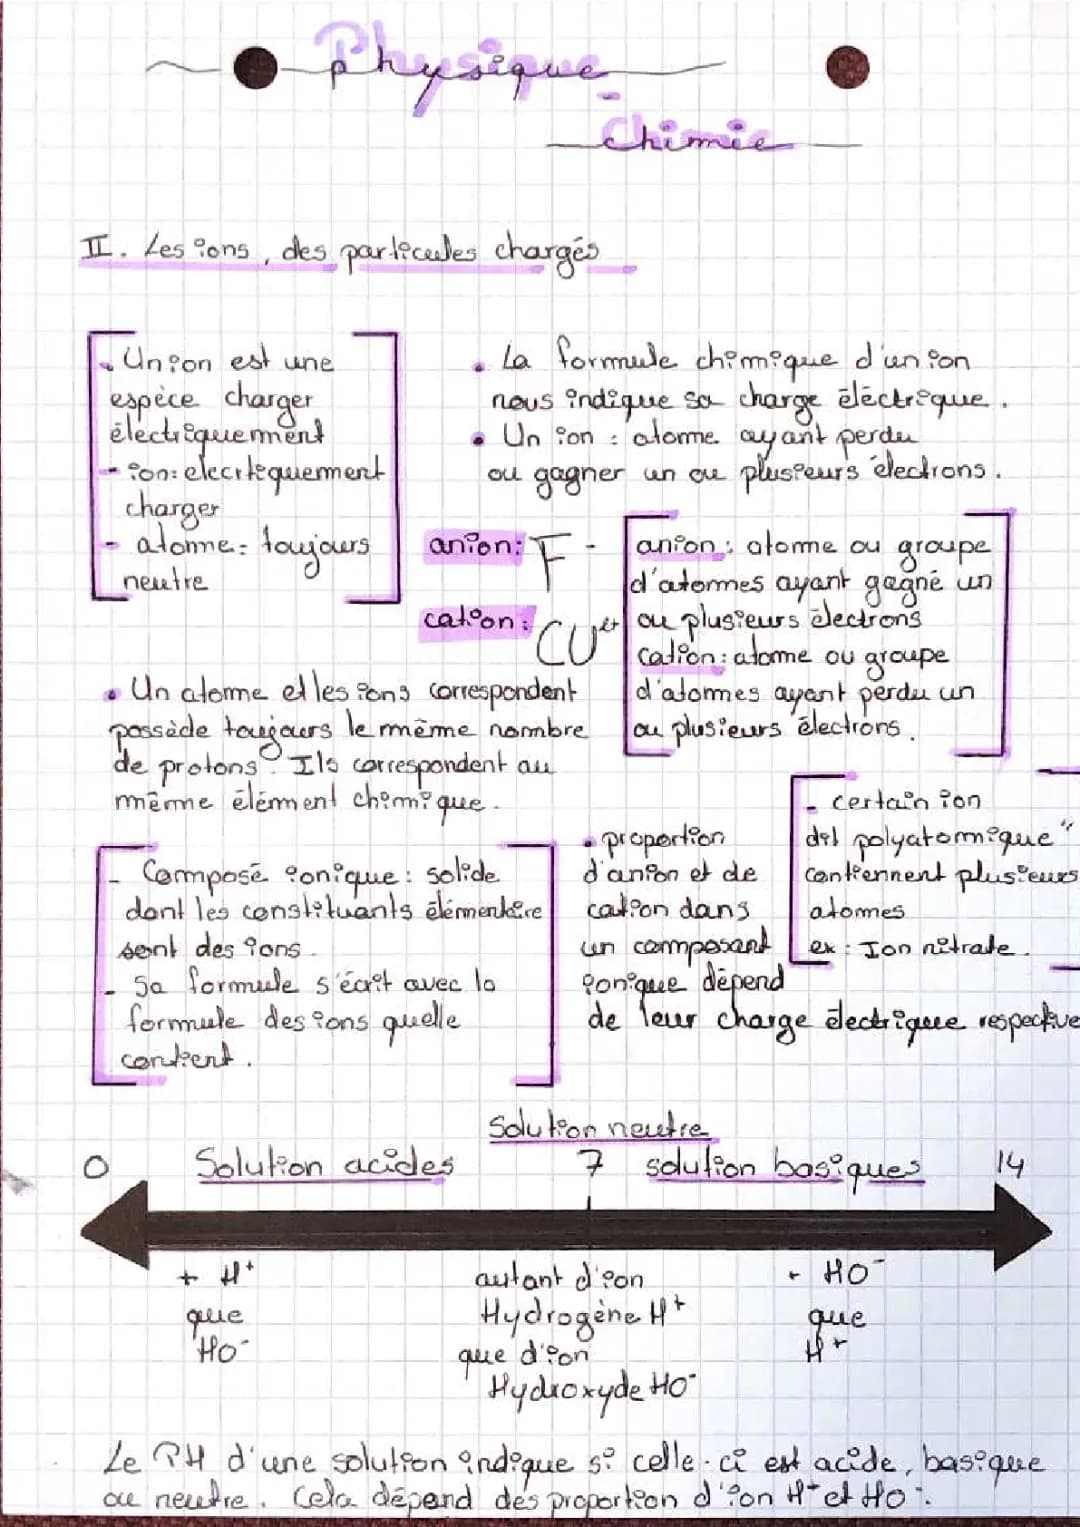 Physique
- Chimie
II. Les ions, des particules chargés
- Un ion est une
espèce charger
électriquement
- ion: elecrtiquement
charger
- atome = toujours
neutre
• La formule chimique d'un ion
nous indique sa charge éléctrique.
• Un ion : atome ayant perdu
ou gagner un ou plusieurs électrons.
anion: F-
cation: CU²⁺
anion: atome ou groupe
d'atomes ayant gagné un
ou plusieurs électrons
Cation: atome ou groupe
d'atomes ayant perdu un
ou plusieurs électrons.
• Un atome et les ions correspondent
possède toujours le même nombre
de protons. Ils correspondent au
même élément chimique.
- certain ion
dit polyatomique"
contiennent plusieurs
atomes
ex: Ion nitrate.
- Composé ionique: solide
dont les constituants élémentaire
sont des ions.
- Sa formule s'écrit avec la
formule des ions quelle
contient.
• proportion
d'anion et de
cation dans
un composant
ionique dépend
de leur charge électrique respective
Solution neutre
0 Solution acides 7 solution basiques 14
+ H+
que
HO-
autant d'ion
Hydrogène H+
que d'ion
Hydroxyde HO-
+ HO-
que
H+
Le PH d'une solution indique si celle-ci est acide, basique
ou neutre. Cela dépend des proportion d'ion H+ et HO-.